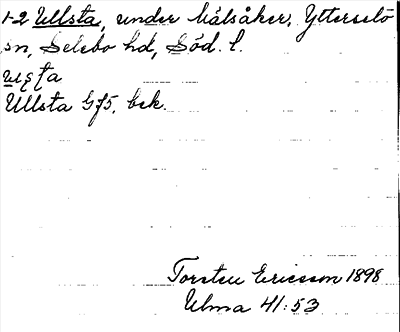 1-2 Ullsta, under Målsåker, Ytterselö
sn, Selebo hd, Söd. l.
usta
Ullsta Gf5, bek.
Torsten Ericsson 1898
Ulma 41:53